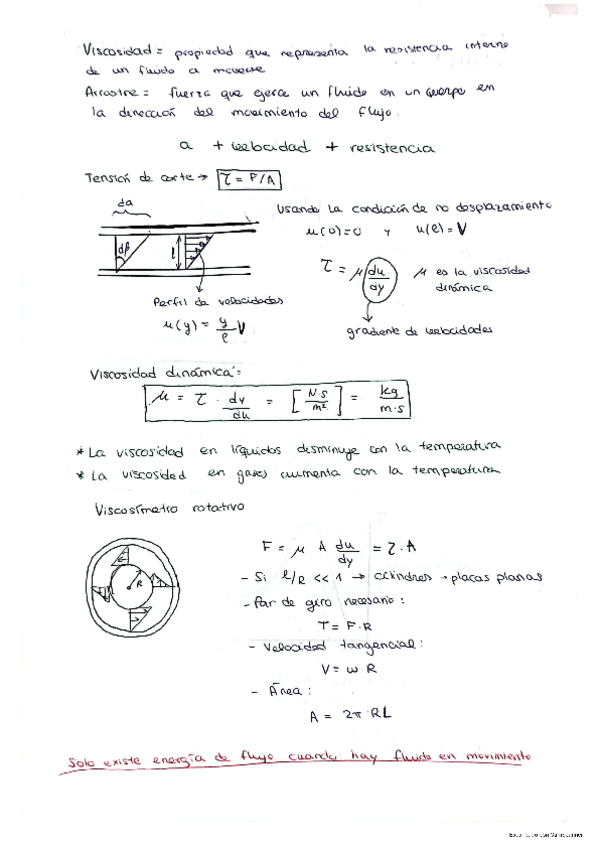 Viscosidad = propiedad que representa la resistencia interna
de un fluido a moverse
Arrastre = fuerza que ejerce un fluido en un cuerpo en
la dirección del movimiento del flujo.
a + velocidad + resistencia
Tensión de corte → τ = F/A
da
Usando la condición de no desplazamiento
u(0)=0 y u(ℓ)=V
dβ
ℓ
τ = μ du/dy μ es la viscosidad
dinámica
Perfil de velocidades
u(y) = y/ℓ V
gradiente de velocidades
Viscosidad dinámica:
μ = τ · dy/du = [N·S/m²] = kg/m·s
* La viscosidad en líquidos disminuye con la temperatura
* La viscosided en gases aumenta con la temperatura
Viscosímetro rotativo
R
F = μ A du/dy = τ·A
- Si ℓ/R << 1 → cilindres → placas planas
- Par de giro necesario:
T = F·R
- Velocidad tangencial:
V = ω·R
- Área:
A = 2π·RL
Solo existe energía de flujo cuando hay fluido en movimiento